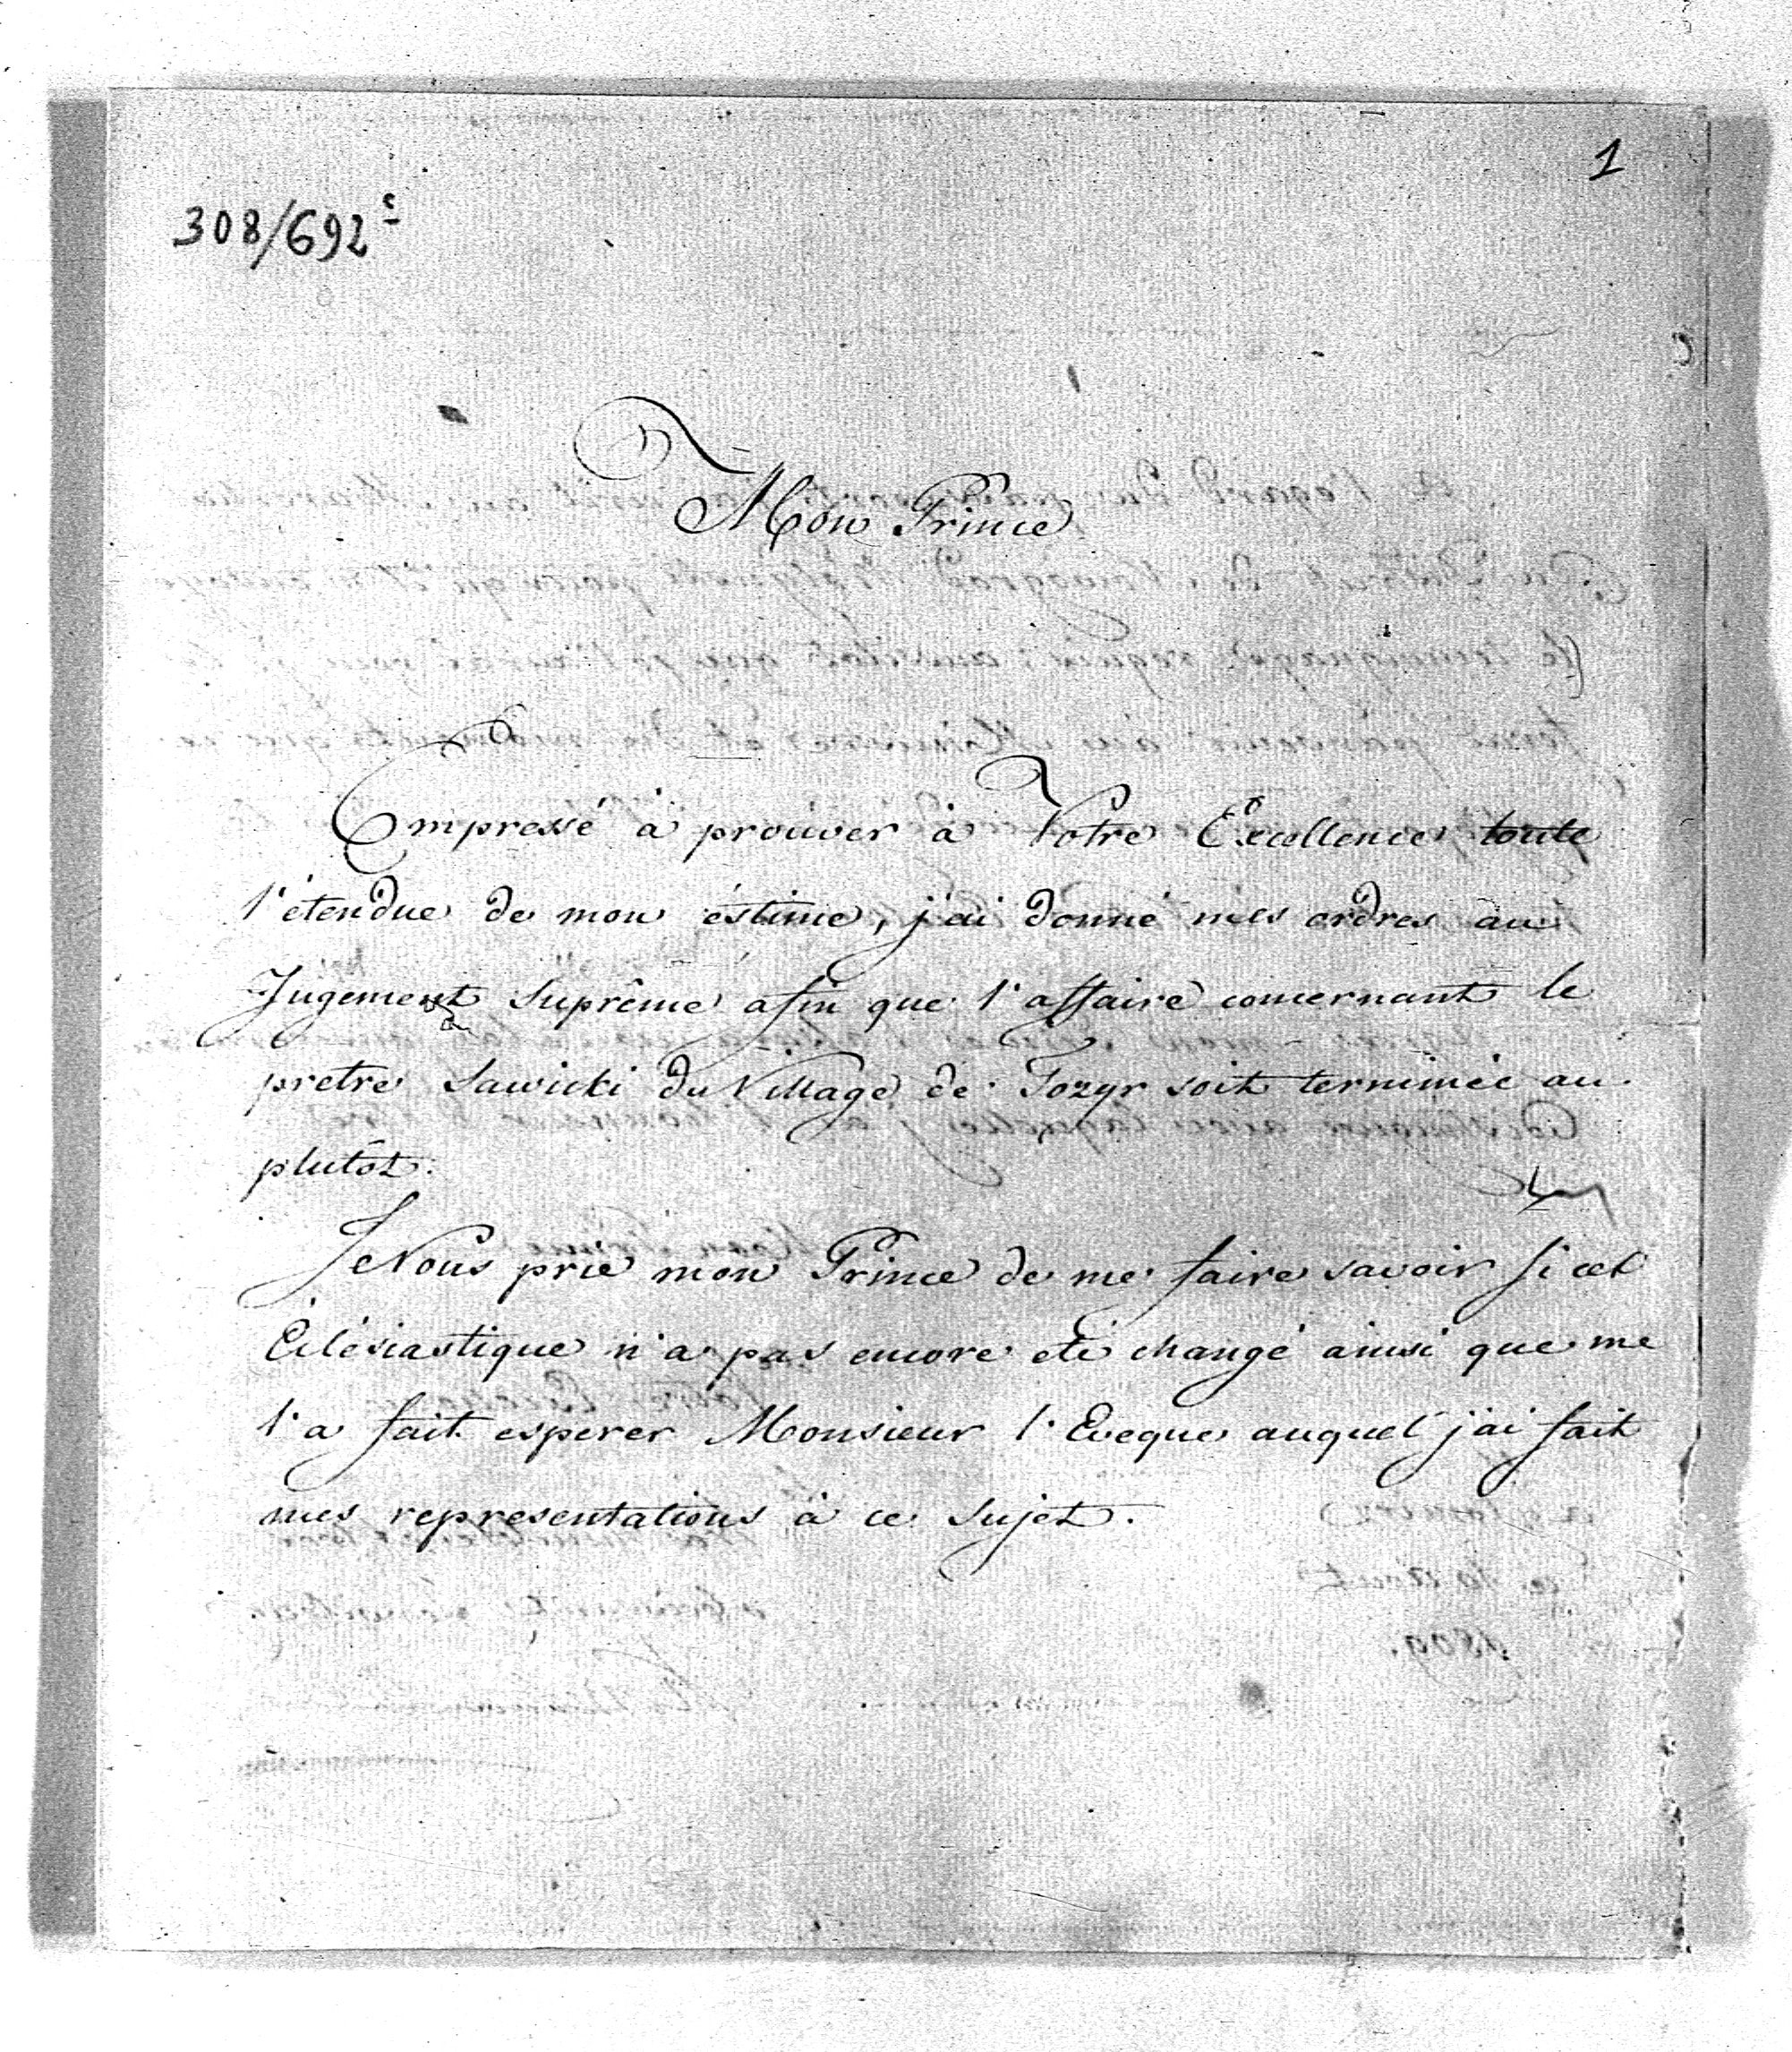 1
308/692
Mon Prince
Empressé à prouver à Votre Excellence toute
l'étendue de mon éstime, j'ai donné mes ordres au
Jugement Suprême afin que l'affaire concernant le
pretre Sawicki du Village de Tozyr soit terminée au
plutôt.
Je Vous prie mon Prince de me faire savoir si cet
Eclésiastique n'a pas encore eté changé ainsi que me
l'a fait esperer Monsieur l'Eveque auquel j'ai fait
mes representations à ce sujet.